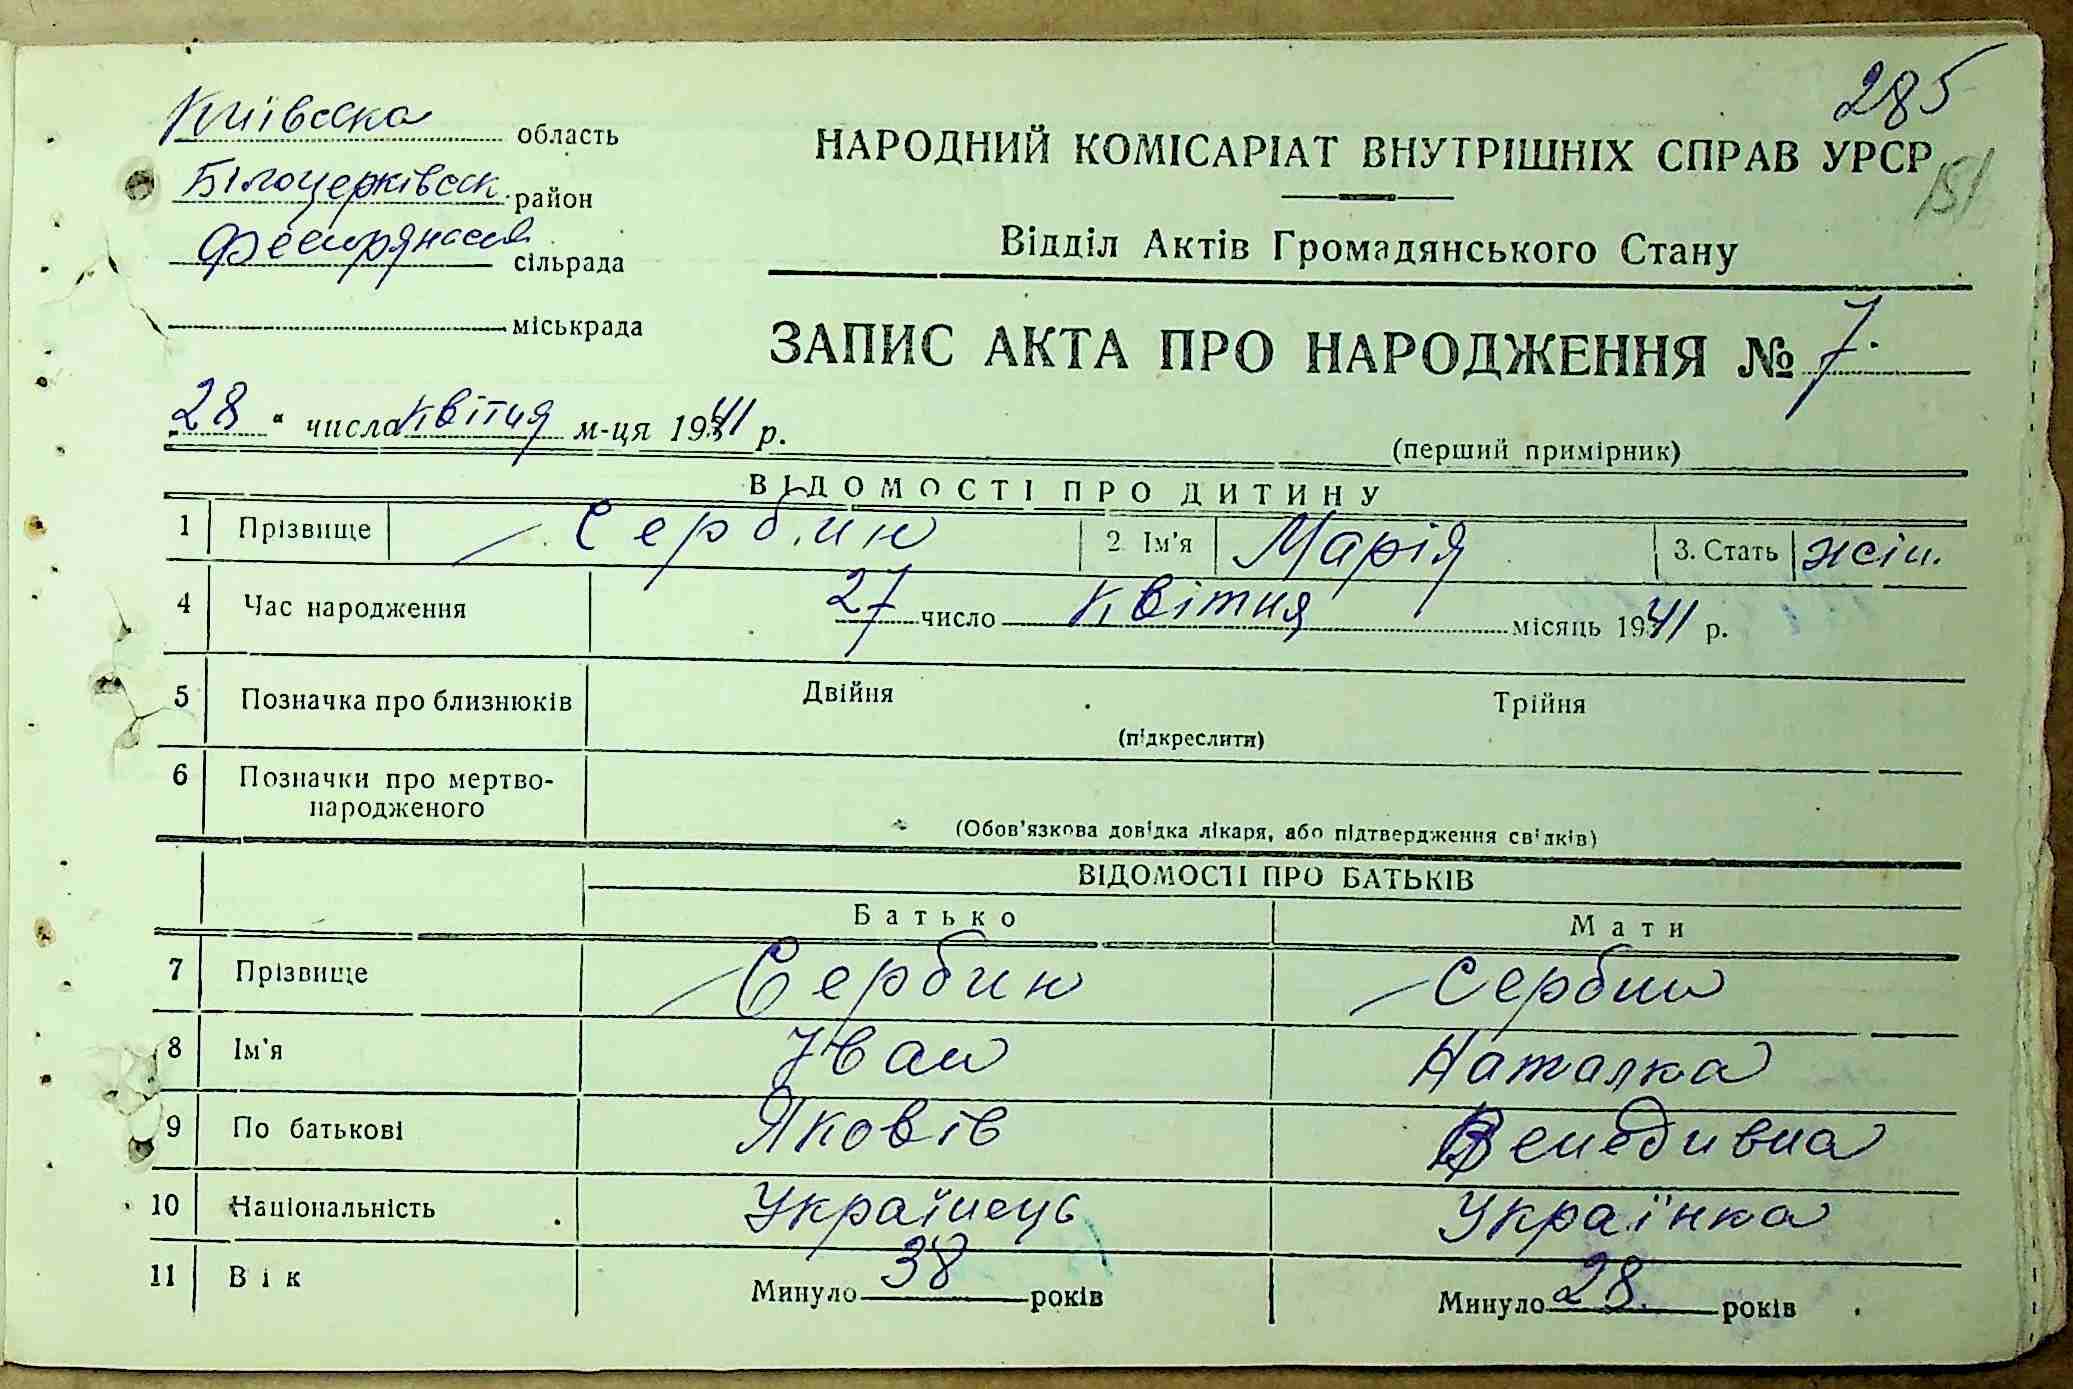 285
Київська область
НАРОДНИЙ КОМІСАРІАТ ВНУТРІШНІХ СПРАВ УРСР
151
Білоцерківськ район
сільрада
Відділ Актів Громадянського Стану
міськрада
ЗАПИС АКТА ПРО НАРОДЖЕННЯ № 7.
28 " числа квітня м-ця 1941 р.
(перший примірник)
ВІДОМОСТІ ПРО ДИТИНУ
1 Прізвище Сербин 2. Ім'я Марія 3. Стать жін.
4 Час народження 27 число квітня місяць 1941 р.
5 Позначка про близнюків Двійня Трійня
(підкреслити)
6 Позначки про мертво-
народженого
(Обов'язкова довідка лікаря, або підтвердження свідків)
ВІДОМОСТІ ПРО БАТЬКІВ
Батько Мати
7 Прізвище Сербин Сербин
8 Ім'я Іван Наталка
9 По батькові Яковів Венедивна
10 Національність Українець Українка
11 Вік Минуло 38 років Минуло 28 років